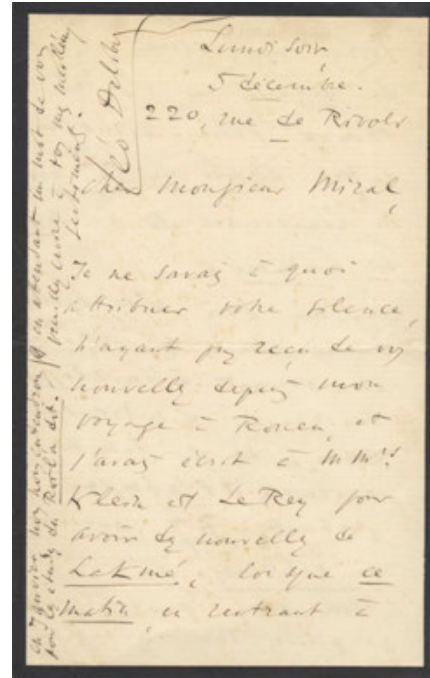 Lundi soir
5 décembre.
220, rue de Rivoli
Cher Monsieur Miral,
Je ne savais à quoi
attribuer votre silence,
n'ayant pas reçu de vos
nouvelles depuis mon
voyage à Rouen, et
j'avais écrit à MMrs
Klein et Le Rey pour
avoir des nouvelles de
Lakmé, lorsque ce
matin, en rentrant à
en Janvier nous nous entendrons
pour les études du Roi l'a dit.
en attendant un mot de vous
à vos meilleurs
sentiments.
Léo Delibes